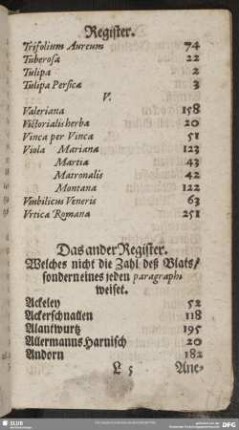 Register.
Trifolium Aureum 74
Tuberosa 22
Tulipa 2
Tulipa Persicæ 3
V.
Valeriana 158
Victorialis herba 20
Vinca per Vinca 51
Viola Mariana 123
Martia 43
Matronalis 42
Montana 122
Vmbilicus Veneris 63
Vrtica Romana 251
Das ander Register.
Welches nicht die Zahl deß Blats/
sondern eines jeden paragraphs
weiset.
Ackeley 52
Ackerschnallen 118
Alantwurtz 195
Allermanns Harnisch 20
Andorn 182
L 5 Ane-
SLUB
DFG